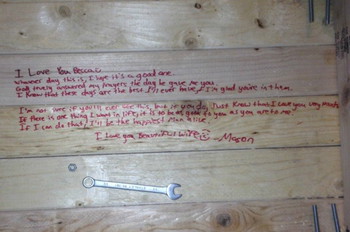 I Love You Becca
Whatever day this is, I hope it's a good one.
God truly answered my prayers the day he gave me you.
I know that these days are the best I'll ever have, I'm glad you're in them.
I'm not sure if you'll ever see this, but if you do, Just know that I love you very much.
If there is one thing I want in life, it is to be as good to you as you are to me.
If I can do that, I'll be the happiest man alive.
I love you Beautiful Wife
-Mason